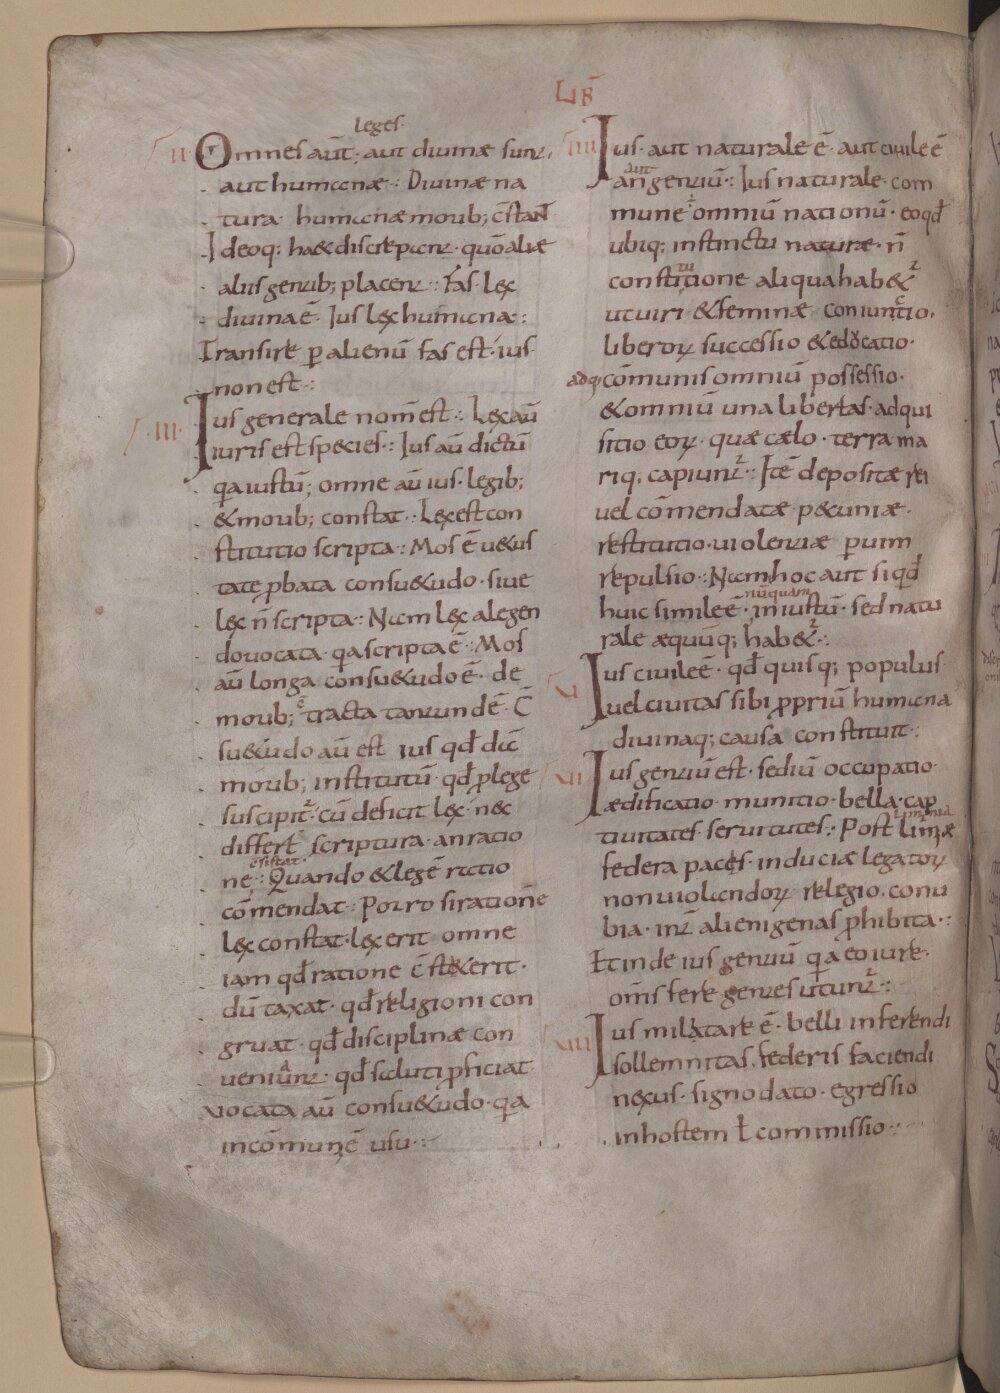 LIB̄
leges·
II Omnes aut̄; aut diuinæ sunt,
aut humanæ·: Diuinæ na
tura· humanæ morib; c̄stant
Ideoq; hæc discrepant· quō aliæ
aliis gentib; placent·: Fas· lex
diuina ē· Ius lex humana·:
Transire p alienū fas est· ius·
non est·:
III· Ius generale nom̄ est·: Lex aū
iuris est species·: Ius aū dictū
q̄a iustū; omne aū ius· legib;
& morib; constat·: Lex est con
stitutio scripta·: Mos ē u&us
tate pbata consu&udo· siue
lex n̄ scripta·: Nam lex alegen
do uocata· q̄a scripta ē·: Mos
aū longa consu&udo ē· de
morib; tracta tantundē· C̄
su&udo aū est ius qd̄ dīc
morib; institutū· qd̄ plege
suscipit̄· cū deficit lex· nec
differt scriptura· an ratio
c̄sistat·
ne·: Quando & legē ratio
cōmendat·: Porro si rationē
lex constat· lex erit omne
iam qd̄ ratione c̄st&erit·
dū taxat· qd̄ religioni con
gruat· qd̄ disciplinæ con
ueniant· qd̄ saluti pficiat·
uocata aū consu&udo· q̄a
in cōmunē usu·:
IIII Ius· aut naturale ē· aut ciuile ē
aut
an gentiū·: Ius naturale· com
mune· omniū nationū· eo qd̄
ubiq; instinctu naturæ· n̄
constitutione aliqua hab&ur
ut uiri & feminæ coniunctio,
liberorꝫ successio & educatio·
adq; cōmunis omniū possessio·
& omniū una libertas· adqui
sitio eorꝫ· quæ cælo· terra ma
riq; capiunt̄·: Itē depositæ rei
uel cōmendatæ p&uniæ·
restitutio· uiolentiæ p uim
repulsio·: Nam hoc aut siqd̄
nūquam
huic simile ē· in iustū· sed natu
rale æquūq; hab&ur·:
V Ius ciuile ē· qd̄ quisq; populus
uel ciuitas sibi ppriū humana
diuinaq; causa constituit·:
VI Ius gentiū est· sediū occupatio·
ædificatio· munitio· bella· cap
tiuitates· seruitutes·: Post limæ
federa paces· induciæ legatorꝫ
non uiolandorꝫ religio. conu
bia· int̄ alienigenas phibita·:
Et inde ius gentiū q̄a eo iure·
om̄s fere gentes utunt̄·:
VIII Ius militare ē· belli inferendi
sollemnitas, federis faciendi
nexus· signo dato· egressio
in hostem ł commissio·: